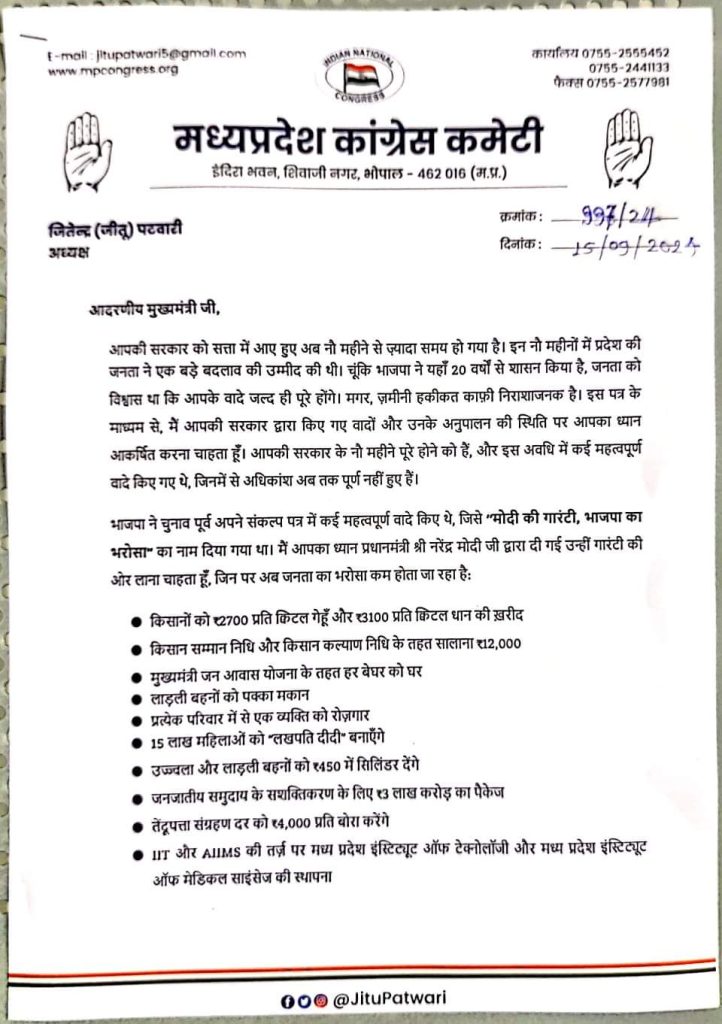 E-mail : jitupatwari5@gmail.com
www.mpcongress.org
INDIAN NATIONAL
CONGRESS
कार्यालय 0755-2555452
0755-2441133
फैक्स 0755-2577981
मध्यप्रदेश कांग्रेस कमेटी
इंदिरा भवन, शिवाजी नगर, भोपाल - 462 016 (म.प्र.)
जितेन्द्र (जीतू) पटवारी
अध्यक्ष
क्रमांक : 997/24
दिनांक : 15/09/2024
आदरणीय मुख्यमंत्री जी,
आपकी सरकार को सत्ता में आए हुए अब नौ महीने से ज़्यादा समय हो गया है। इन नौ महीनों में प्रदेश की
जनता ने एक बड़े बदलाव की उम्मीद की थी। चूंकि भाजपा ने यहाँ 20 वर्षों से शासन किया है, जनता को
विश्वास था कि आपके वादे जल्द ही पूरे होंगे। मगर, ज़मीनी हकीकत काफ़ी निराशाजनक है। इस पत्र के
माध्यम से, मैं आपकी सरकार द्वारा किए गए वादों और उनके अनुपालन की स्थिति पर आपका ध्यान
आकर्षित करना चाहता हूँ। आपकी सरकार के नौ महीने पूरे होने को हैं, और इस अवधि में कई महत्वपूर्ण
वादे किए गए थे, जिनमें से अधिकांश अब तक पूर्ण नहीं हुए हैं।
भाजपा ने चुनाव पूर्व अपने संकल्प पत्र में कई महत्वपूर्ण वादे किए थे, जिसे "मोदी की गारंटी, भाजपा का
भरोसा" का नाम दिया गया था। मैं आपका ध्यान प्रधानमंत्री श्री नरेंद्र मोदी जी द्वारा दी गई उन्हीं गारंटी की
ओर लाना चाहता हूँ, जिन पर अब जनता का भरोसा कम होता जा रहा है:
● किसानों को ₹2700 प्रति क्विंटल गेहूँ और ₹3100 प्रति क्विंटल धान की ख़रीद
● किसान सम्मान निधि और किसान कल्याण निधि के तहत सालाना ₹12,000
● मुख्यमंत्री जन आवास योजना के तहत हर बेघर को घर
● लाड़ली बहनों को पक्का मकान
● प्रत्येक परिवार में से एक व्यक्ति को रोज़गार
● 15 लाख महिलाओं को "लखपति दीदी" बनाएँगे
● उज्ज्वला और लाड़ली बहनों को ₹450 में सिलिंडर देंगे
● जनजातीय समुदाय के सशक्तिकरण के लिए ₹3 लाख करोड़ का पैकेज
● तेंदूपत्ता संग्रहण दर को ₹4,000 प्रति बोरा करेंगे
● IIT और AIIMS की तर्ज़ पर मध्य प्रदेश इंस्टिट्यूट ऑफ टेक्नोलॉजी और मध्य प्रदेश इंस्टिट्यूट
ऑफ मेडिकल साइंसेज की स्थापना
@JituPatwari